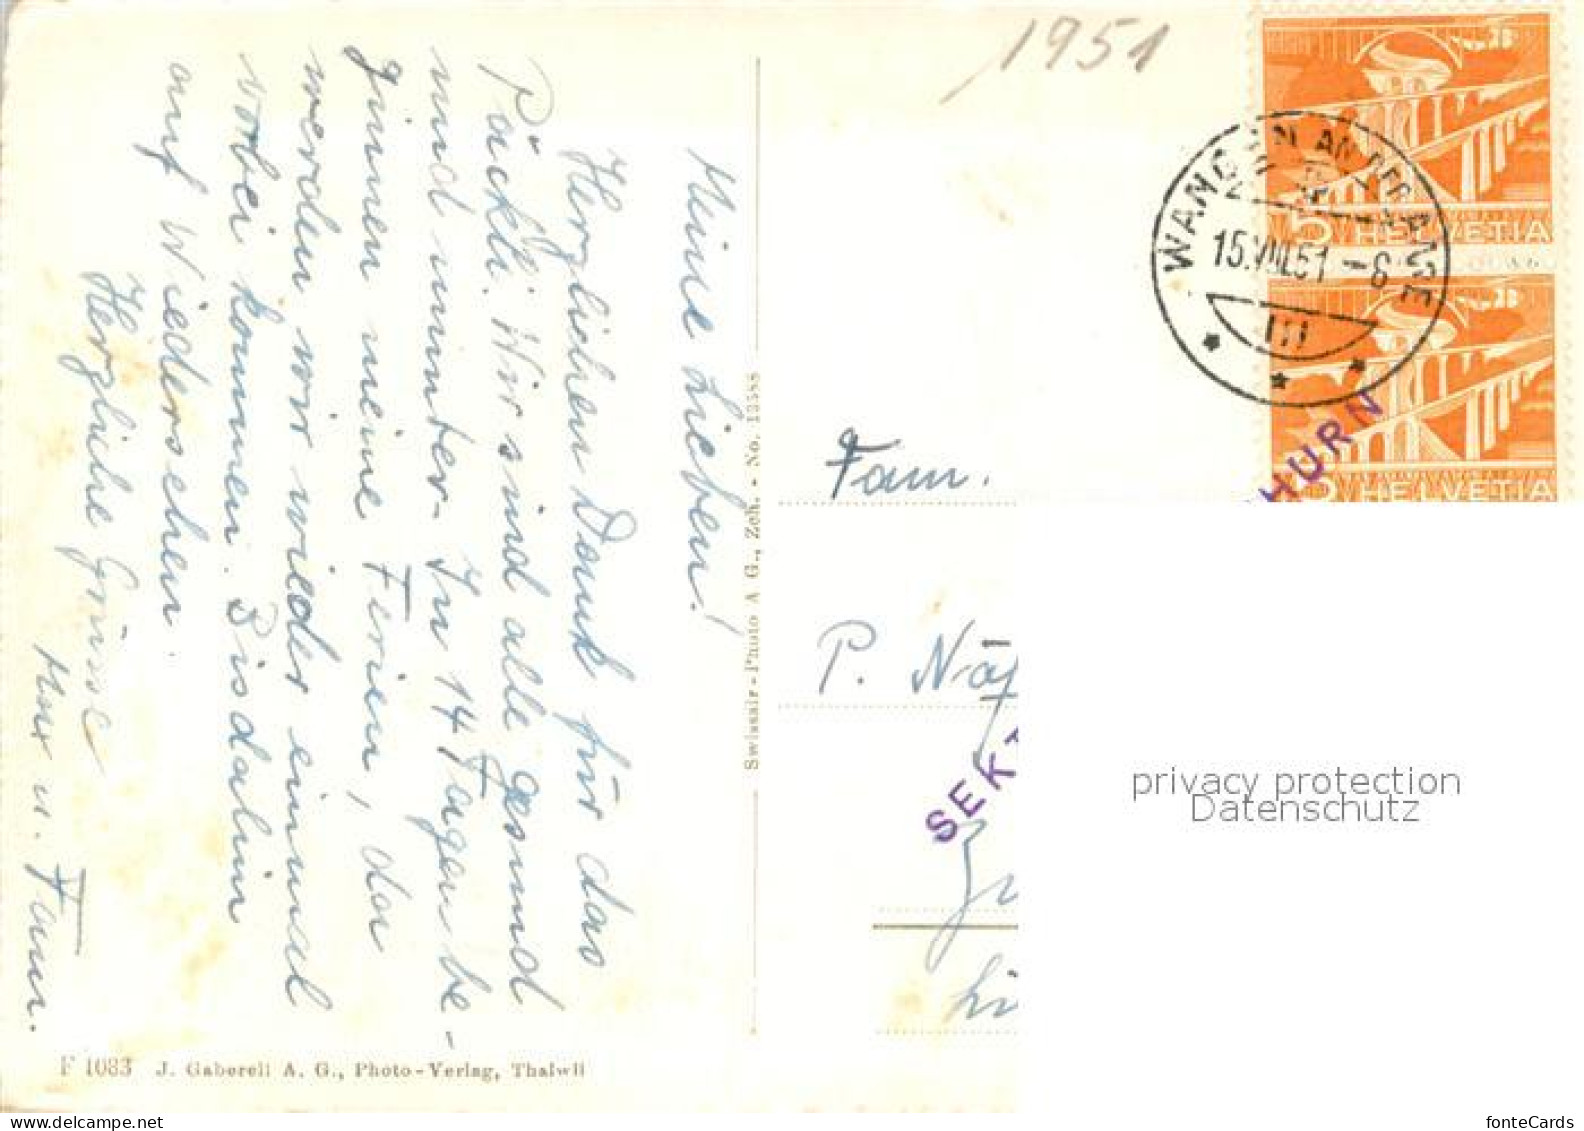 1951
Meine Lieben!
Herzlichen Dank für das
Päckli. Wir sind alle gesund
und munter. In 14 Tagen be-
ginnen meine Ferien, da
werden wir wieder einmal
vorbei kommen. Bis dahin
auf Wiedersehen.
Herzliche Grüsse
Max u. Fam.
F 1083 J. Gaberell A. G., Photo-Verlag, Thalwil
Swissair-Photo A G., Zch. - No. 13588
HELVETIA
5 HELVETIA
WANGEN AN DER AARE
15.VIII.51-6
HURN
Fam.
P. Näf
SEK
privacy protection
Datenschutz
fonteCards